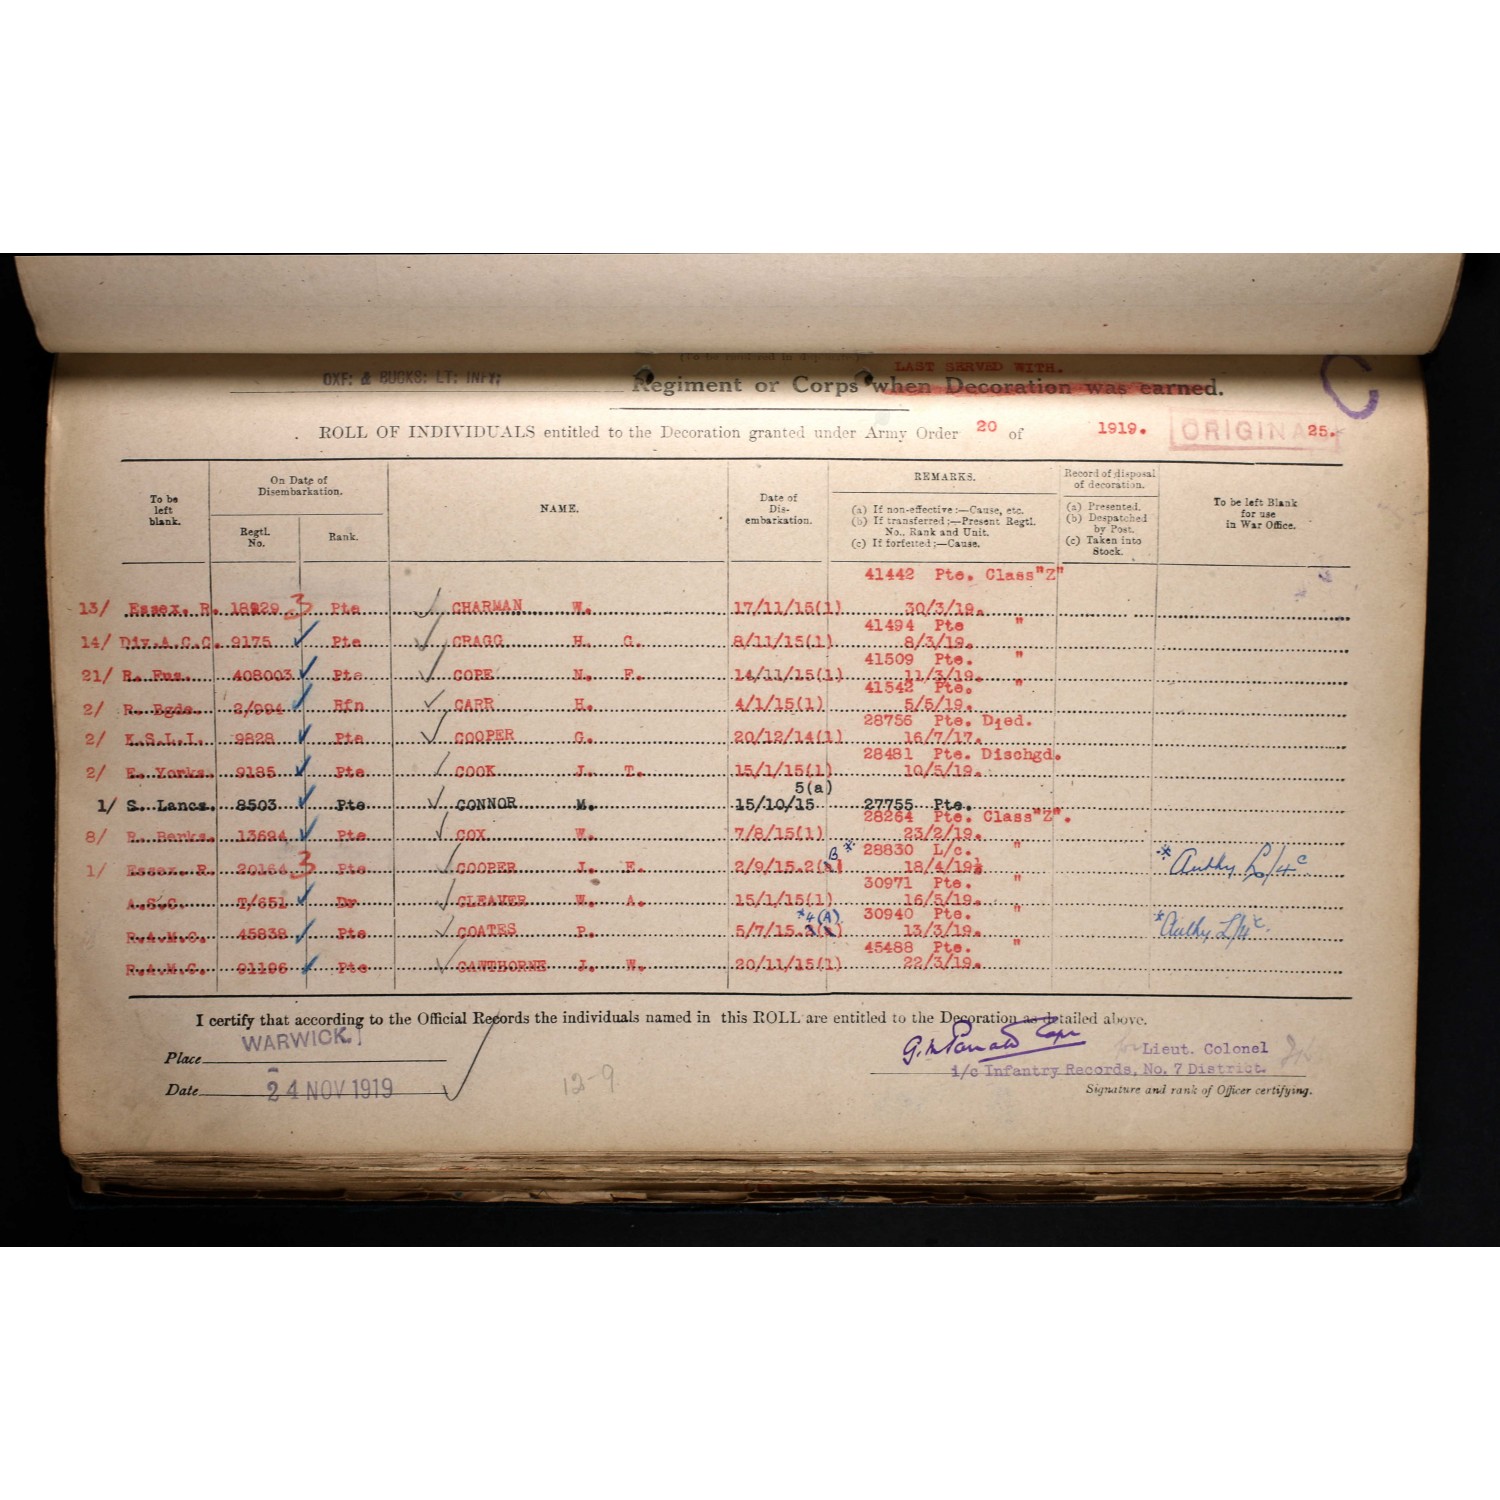 LAST SERVED WITH.
OXF: & BUCKS: LT: INFY: Regiment or Corps when Decoration was earned.
C
ROLL OF INDIVIDUALS entitled to the Decoration granted under Army Order 20 of 1919. ORIGINAL 25.
To be left blank. On Date of Disembarkation. Regtl. No. Rank. NAME. Date of Disembarkation. REMARKS. (a) If non-effective:—Cause, etc. (b) If transferred:—Present Regtl. No., Rank and Unit. (c) If forfeited:—Cause. Record of disposal of decoration. (a) Presented. (b) Despatched by Post. (c) Taken into Stock. To be left Blank for use in War Office.
41442 Pte. Class"Z"
13/ Essex. R. 18929 3 Pte CHARMAN W. 17/11/15(1) 30/3/19.
41494 Pte "
14/ Div.A.C.C. 9175 Pte CRAGG H. G. 8/11/15(1) 8/3/19.
41509 Pte. "
21/ R. Fus. 408003 Pte COPE N. F. 14/11/15(1) 11/3/19.
41542 Pte. "
2/ R. Bgde. 2/994 Rfn CARR H. 4/1/15(1) 5/5/19.
28756 Pte. Died.
2/ K.S.L.I. 9828 Pte COOPER G. 20/12/14(1) 16/7/17.
28481 Pte. Dischgd.
2/ E. Yorks. 9185 Pte COOK J. T. 15/1/15(1) 10/5/19.
5(a)
1/ S. Lancs. 8503 Pte CONNOR M. 15/10/15 27755 Pte.
28264 Pte. Class"Z".
8/ R. Berks. 13694 Pte COX W. 7/8/15(1) 23/2/19.
B * 28830 L/c. "
1/ Essex. R. 20164 3 Pte COOPER J. E. 2/9/15.2( 18/4/19 * Authy L/4c
30971 Pte. "
A.S.C. T/651 Dr CLEAVER W. A. 15/1/15(1) 16/5/19.
*4(A) 30940 Pte. "
R.A.M.C. 45838 Pte COATES P. 5/7/15. 13/3/19. * Authy L/4c.
45488 Pte. "
R.A.M.C. 91196 Pte CAWTHORNE J. W. 20/11/15(1) 22/3/19.
I certify that according to the Official Records the individuals named in this ROLL are entitled to the Decoration as detailed above.
WARWICK.
Place
Lieut. Colonel
i/c Infantry Records, No. 7 District.
Date 24 NOV 1919
12-9
Signature and rank of Officer certifying.